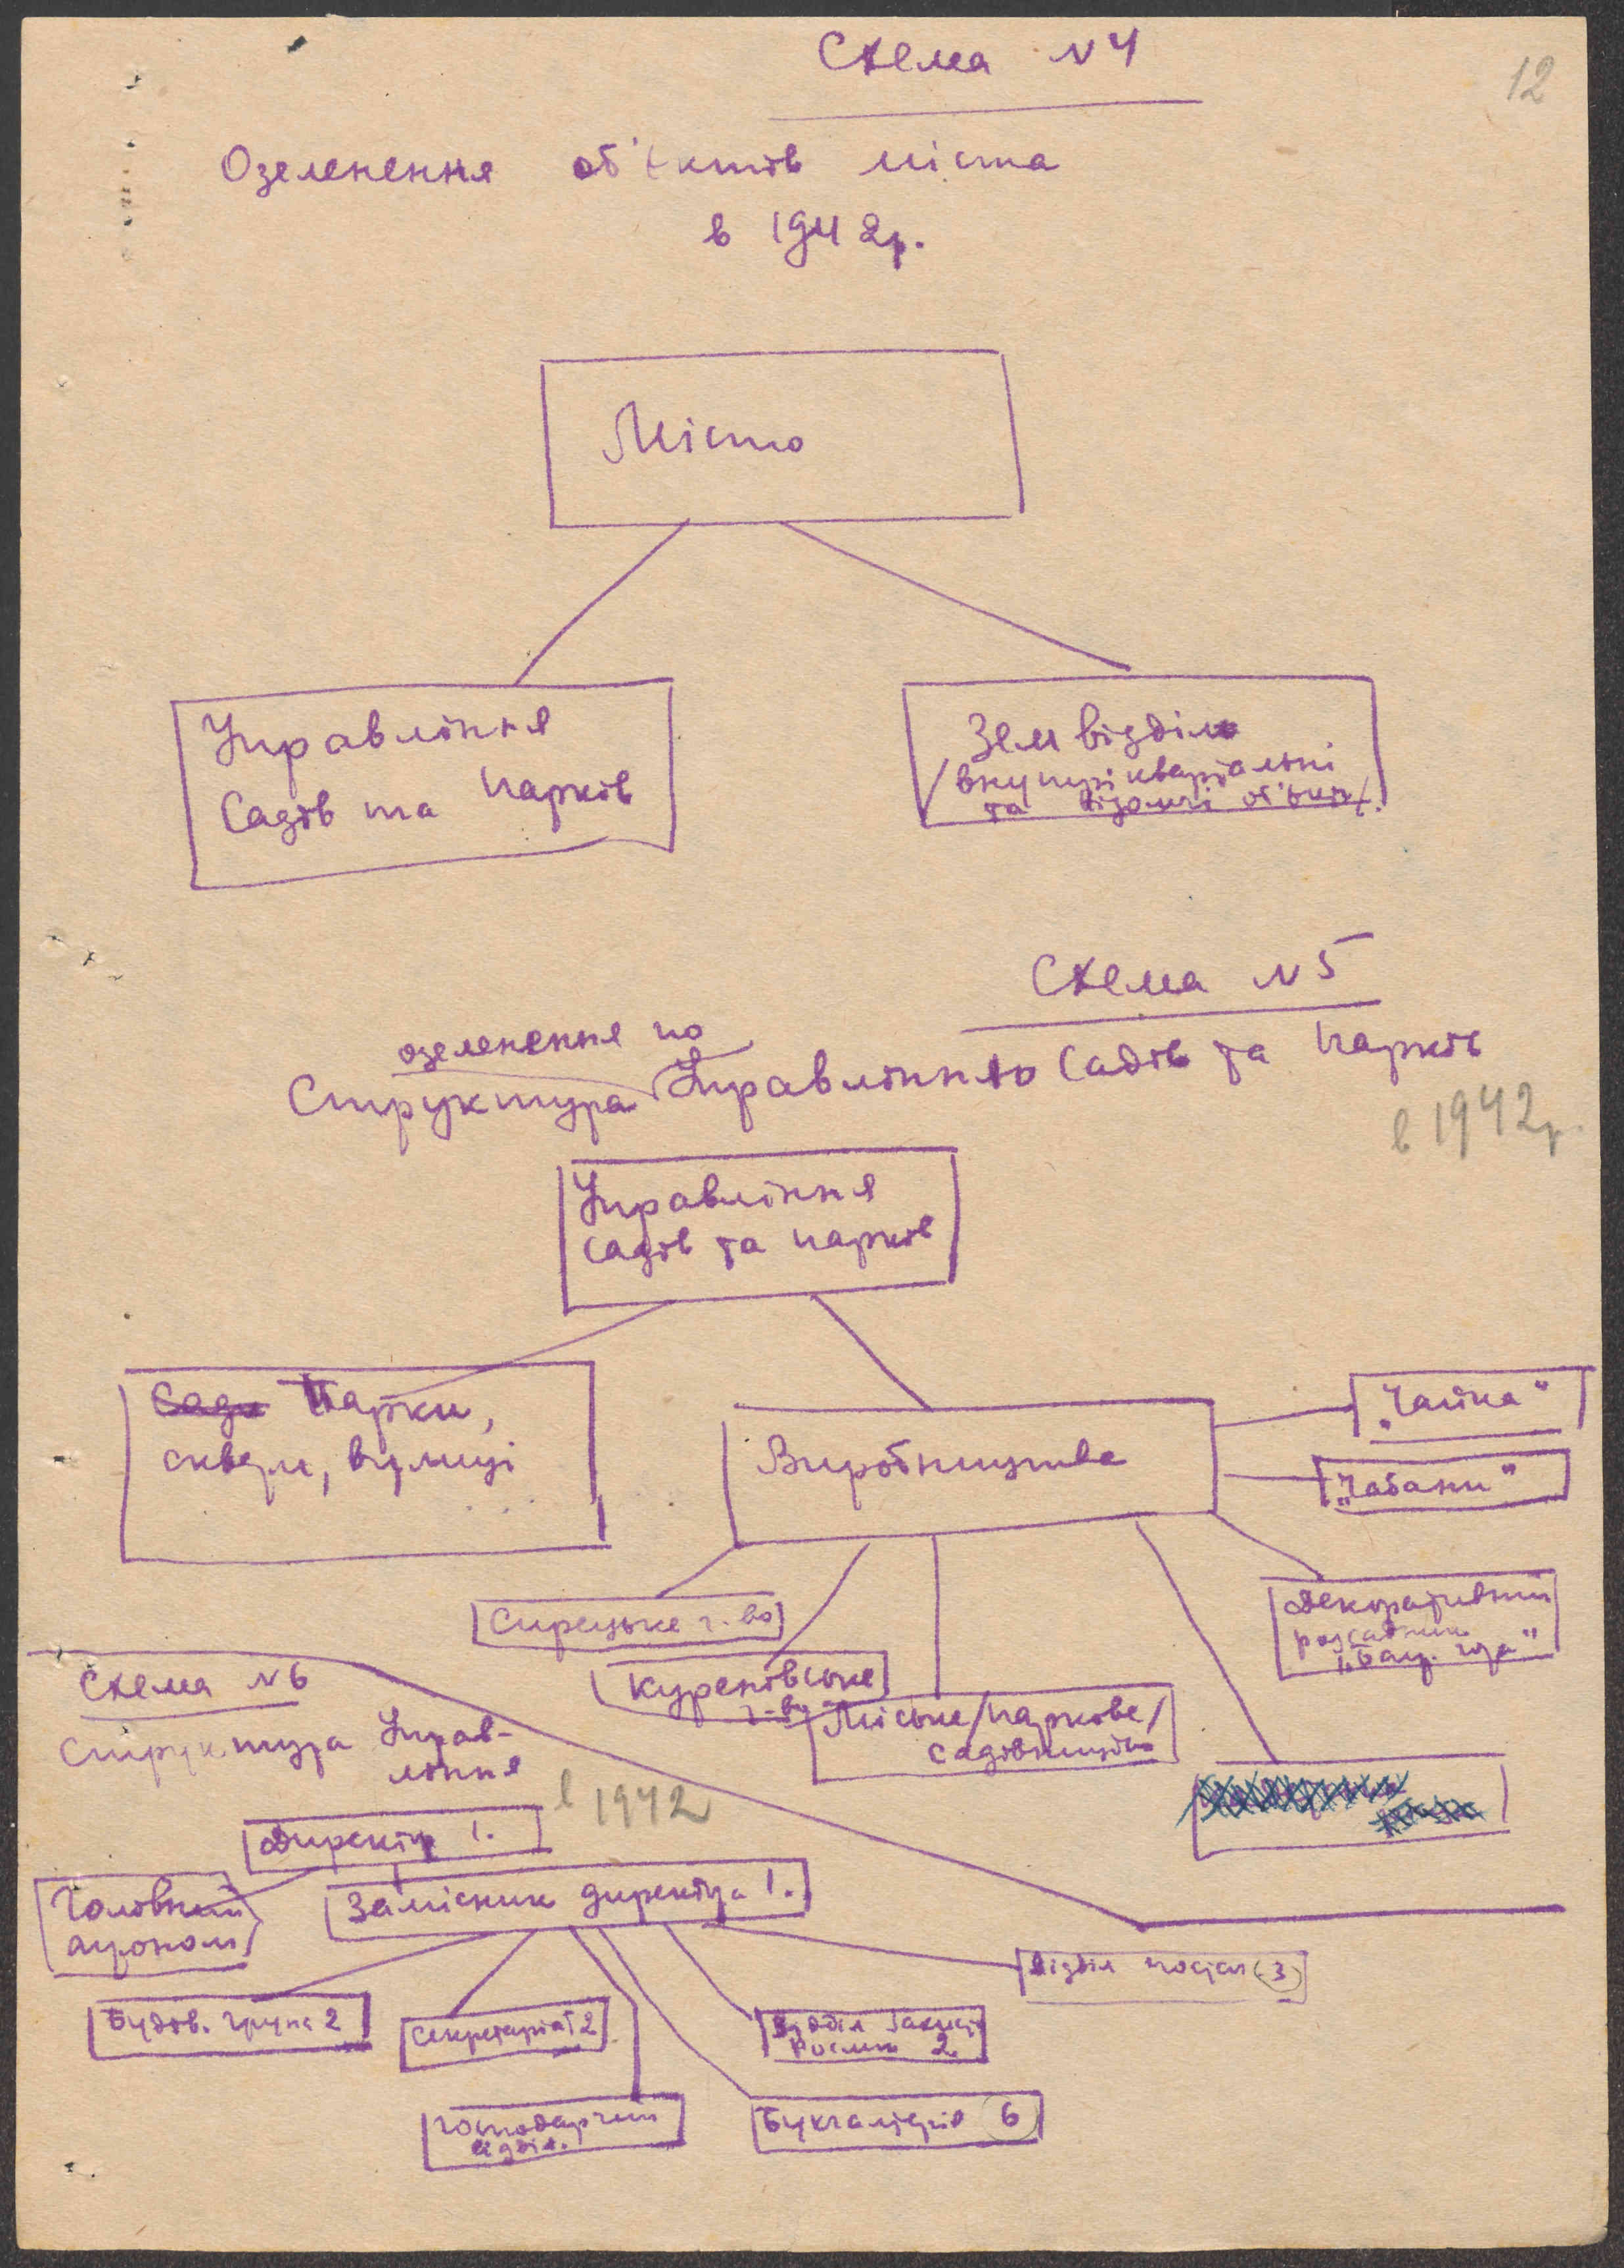 12
Схема N 4
Озеленення об'єктів міста
в 1942р.
Місто
Управління
Садів та парків
Земвідділ
/внутріквартальні
та відомчі об'єкти/.
Схема N 5
озеленення по
Структура Управлінню Садів та парків
в 1942р.
Управління
садів та парків
Сади Парки,
сквери, вулиці
Виробництва
„Чайка"
„Чабани"
Декоративний
розсадник
Сирецьке г-во
Куренівське
г-во
Міське/паркове/
садівництво
Схема N 6
Структура Управ-
ління
в 1942
Директор 1.
Головний
агроном
Замісник директора 1.
Будів. група 2
Секретаріат 2
Відділ захисту
Рослин 2.
Відділ (3)
Господарчий
відділ.
Бухгалтерія 6